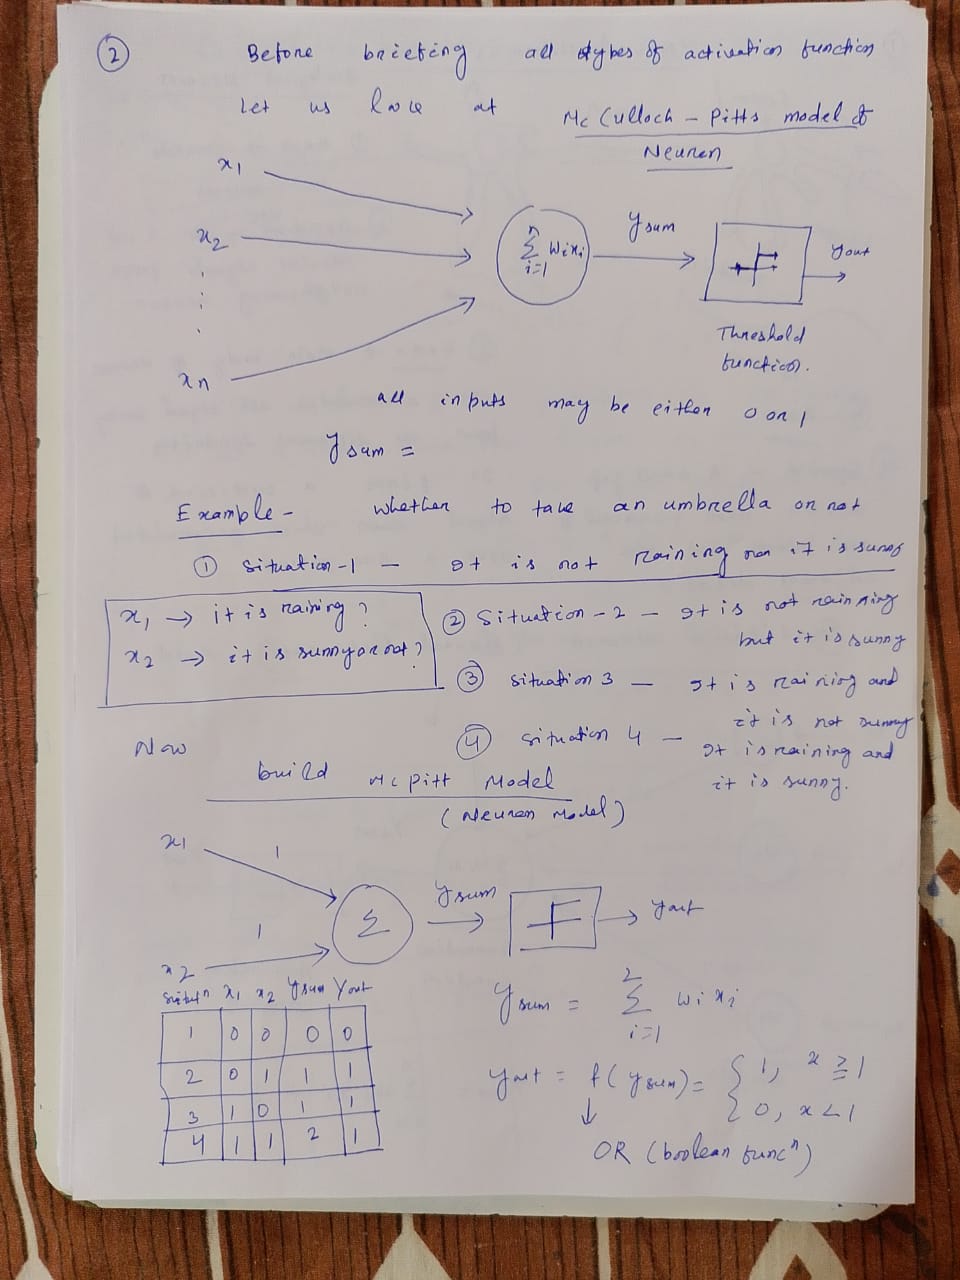 2
Before briefing all types of activation function
Let us look at Mc Culloch - Pitts model of
Neuron
x1
x2
xn
n
Σ wixi
i=1
ysum
yout
Threshold
function.
all inputs may be either 0 or 1
ysum =
Example - whether to take an umbrella or not
① Situation-1 - It is not raining nor it is sunny
x1 → it is raining?
x2 → it is sunny or not?
② Situation-2 - It is not rainning
but it is sunny
③ Situation 3 - It is raining and
it is not sunny
④ Situation 4 - It is raining and
it is sunny.
Now
build Mc pitt Model
(Neuron Model)
x1
1
1
x2
Σ
ysum
yout
Situtn x1 x2 ysum yout
1 0 0 0 0
2 0 1 1 1
3 1 0 1 1
4 1 1 2 1
2
ysum = Σ wi xi
i=1
yout = f(ysum) = { 1, x ≥ 1
0, x < 1
↓
OR (boolean funcn)